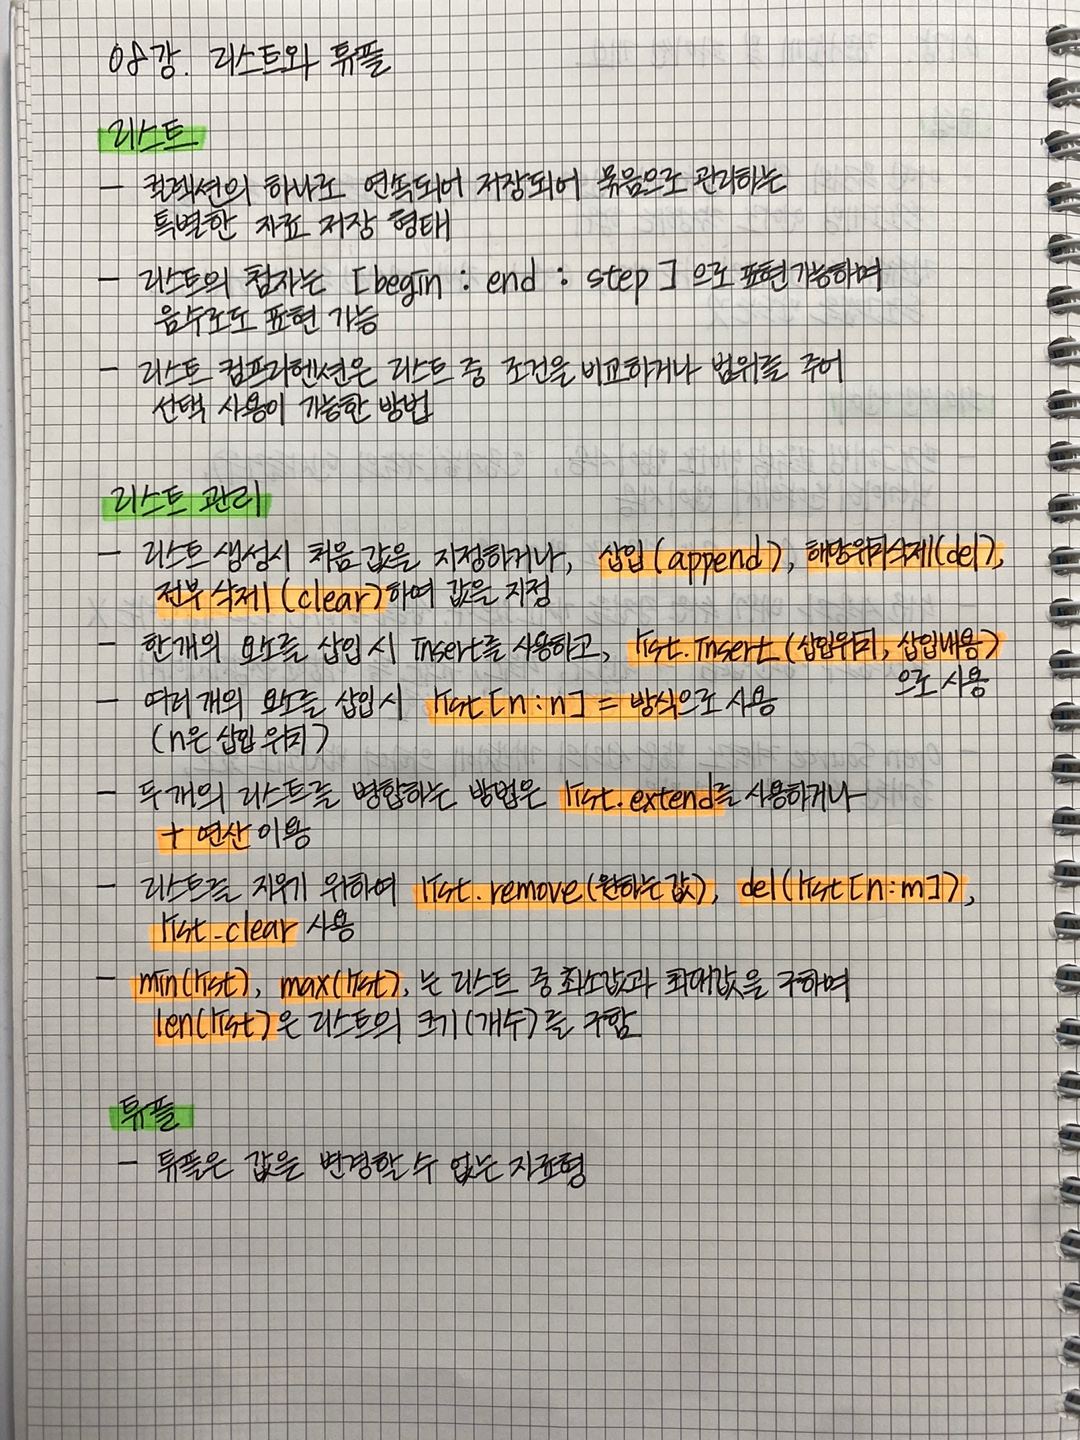 08강. 리스트와 튜플
리스트
- 컬렉션의 하나로 연속되어 저장되어 묶음으로 관리하는
특별한 자료 저장 형태
- 리스트의 첨자는 [begin : end : step] 으로 표현 가능하며
음수로도 표현 가능
- 리스트 컴프리헨션은 리스트 중 조건을 비교하거나 범위를 주어
선택 사용이 가능한 방법
리스트 관리
- 리스트 생성시 처음 값을 지정하거나, 삽입(append), 해당위치삭제(del),
전부 삭제(clear)하여 값을 지정
- 한개의 요소를 삽입 시 insert를 사용하고, list.insert(삽입위치, 삽입내용)
으로 사용
- 여러개의 요소를 삽입시 list[n:n] = 방식으로 사용
(n은 삽입 위치)
- 두개의 리스트를 병합하는 방법은 list.extend를 사용하거나
+ 연산 이용
- 리스트를 지우기 위하여 list.remove(원하는 값), del(list[n:m]),
list.clear 사용
- min(list), max(list), 는 리스트 중 최소값과 최대값을 구하며
len(list)은 리스트의 크기(개수)를 구함
튜플
- 튜플은 값을 변경할 수 없는 자료형